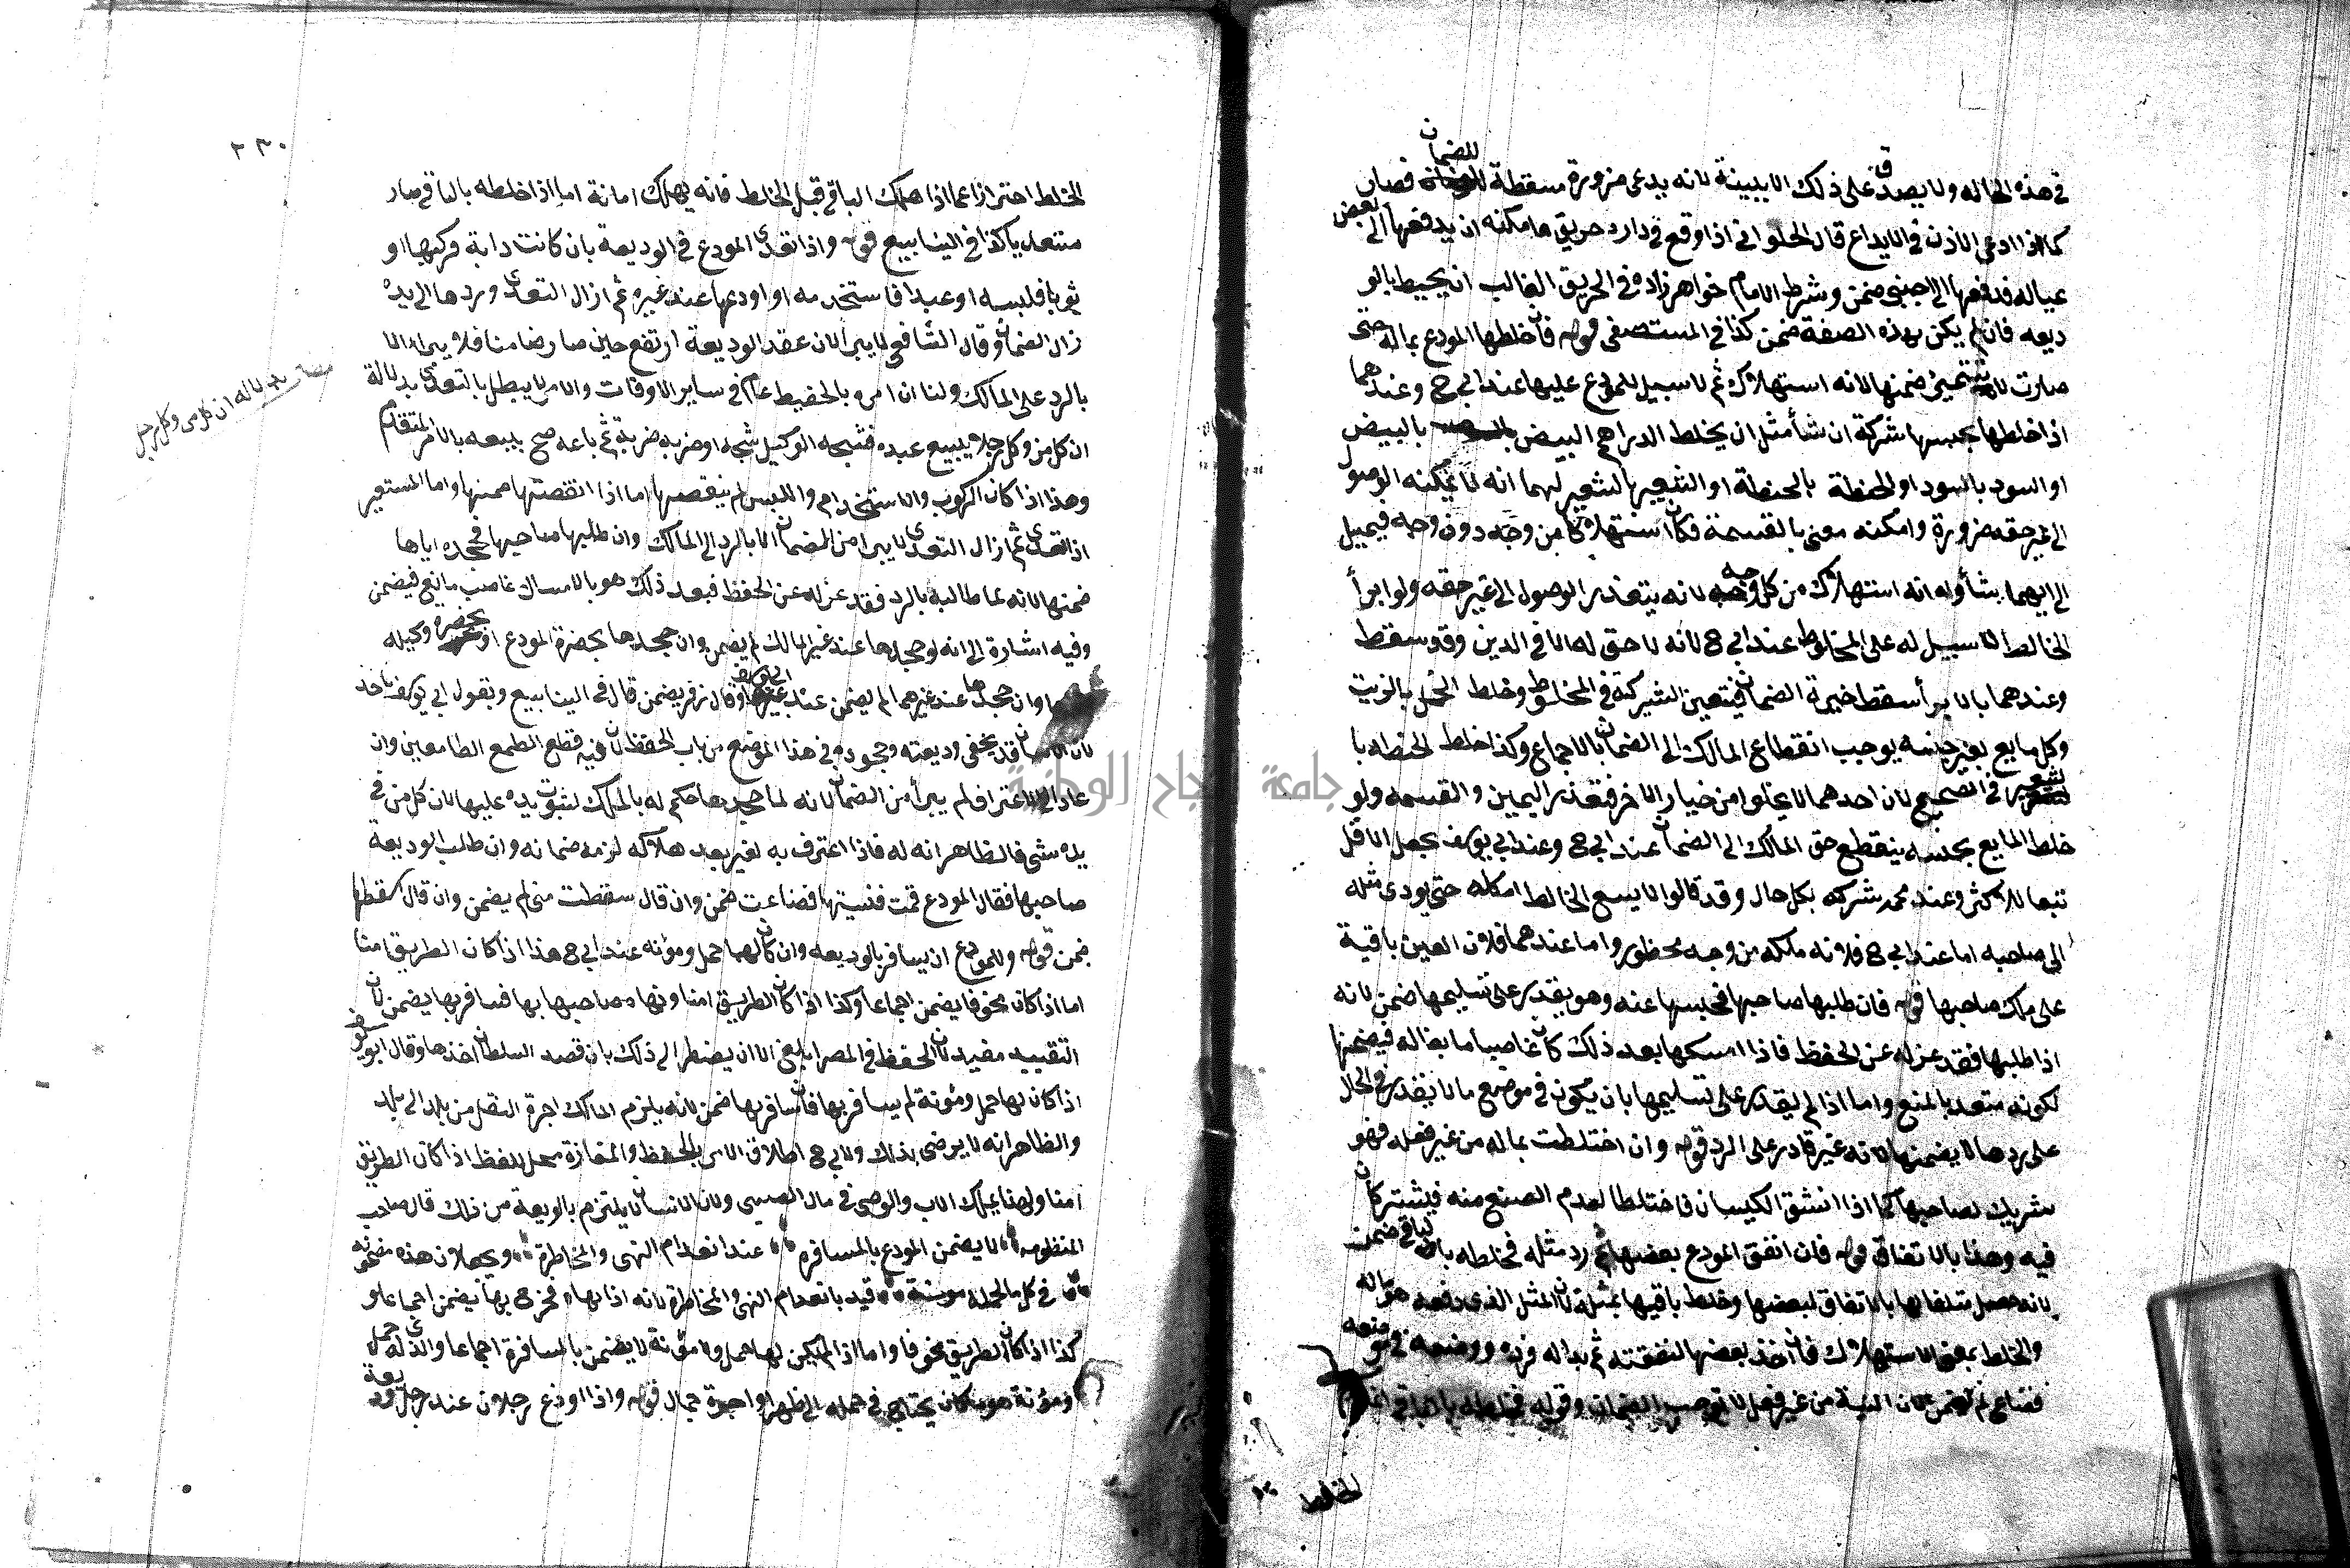 في هذه الحاله ولا يصدق على ذلك الا ببينة لانه يدعى ضرورة مسقطة للضمان فصار
كما اذا ادعى الاذن في الايداع قال الحلواني اذا وقع في داره حريق فامكنه ان يدفعها الى بعض
عياله فدفعها الى اجنبي ضمن وشرط الامام خواهر زاده في الحريق الغالب ان يحيط بالو
ديعه فان لم يكن بهذه الصفة ضمن كذا في المستصفى قوله فان خلطها المودع بماله حتى
صارت لا تتميز ضمنها لانه استهلاك ثم لا سبيل للمودع عليها عند ابي ح وعندهما
اذا خلطها بجنسها شركة ان شأ مثل ان يخلط الدراهم البيض بالبيض
او السود بالسود او الحنطة بالحنطة او الشعير بالشعير لهما انه لا يمكنه الوصول
الى عين حقه ضرورة وامكنه معنى بالقسمة فكان استهلاكا من وجه دون وجه فيميل
الى ايهما شأ وله انه استهلاك من كل وجه لانه يتعذر الوصول الى عين حقه ولو ابرأ
الخالط لا سبيل له على المخلوط عند ابي ح لانه لا حق له الا في الدين وقد سقط
وعندهما بالابرأ سقط خيرة الضمان فيتعين الشركة في المخلوط وخلط الخل بالزيت
وكل مايع بغير جنسه يوجب انقطاع المالك الى الضمان بالاجماع وكذا خلط الحنطه با
لشعير في الصحيح لان احدهما لا يخلوا من خيار الاخر فتعذر اليمين والقسمه ولو
خلط المايع بجنسه ينقطع حق المالك الى الضمان عند ابي ح وعند ابي يوسف يجعل الاقل
تبعا للاكثر وعند محمد شركه بكل حال وقد قالوا لا يسع الخالط اكله حتى يودى مثله
الى صاحبه اما عند ابي ح فلانه ملكه من وجه محظور واما عندهما فلان العين باقية
على ملك صاحبها قوله فان طلبها صاحبها فحبسها عنه وهو يقدر على تسليمها ضمن لانه
اذا طلبها فقد عزله عن الحفظ فاذا امسكها بعد ذلك كان غاصبا مانعا له فيضمنها
لكونه متعد بالمنع واما اذا لم يقدر على تسليمها بان يكون في موضع ما لا يقدر في الحال
على ردها لا يضمنها لانه غير قادر على الرد قوله وان اختلطت بماله من غير فعله فهو
شريك لصاحبها كما اذا انشق الكيسان فاختلطا لعدم الصنع منه فيشتركان
فيه وهذا بالاتفاق قوله فان انفق المودع بعضها ثم رد مثله فخلطه بالباقي ضمن
لانه حصل متلفا لها بالاتفاق لبعضها وخلط باقيها بمثله لان المثل الذى دفعه هو ماله
والخلط بمعنى الاستهلاك فان اخذ بعضها لنفقته ثم بدا له فرده ووضعه في موضعه
فضاع لم يضمن لان النية من غير فعل لا توجب الضمان وقوله فخلطه بالباقي
الخلط
٢٣٠
الخلط احترازا عما اذا هلك الباقي قبل الخلط فانه يهلك امانة اما اذا خلطه بالباقي صار
متعديا كذا في الينابيع قوله واذا تعدى المودع في الوديعة بان كانت دابة فركبها او
ثوبا فلبسه او عبدا فاستخدمه او اودعها عند غيره ثم ازال التعدى وردها الى يده
زال الضمان وقال الشافعي لا يبرا لان عقد الوديعة ارتفع حين صار ضامنا فلا يبرا الا
بالرد على المالك ولنا ان امره بالحفيظ عام في ساير الاوقات والامر لا يبطل بالتعدى بدلالة
ان كل من وكل رجلا يبيع عبده فشجه الوكيل شجه او ضربه ضربة ثم باعه صح ببيعه بالامر المتقدم
وهذا اذا كان الركوب والاستخدام واللبس لم ينقصها اما اذا انقصتها ضمنها واما المستعير
اذا تعدى ثم ازال التعدى لا يبرا من الضمان الا بالرد الى المالك وان طلبها صاحبها فجحده اياها
ضمنها لانه لما طالبه بالرد فقد عزله عن الحفظ فبعد ذلك هو بالامساك غاصب مانع فيضمن
وفيه اشارة الى انه لو جحدها عند غير المالك لم يضمن وان جحدها بحضرة المودع او بحضرة وكيله
وان جحدها عند غيرهما لم يضمن عند ابي يوسف وقال زفر يضمن قال في الينابيع وبقول ابي يوسف ناخذ
لان الانسان قد يخفى وديعته وجحوده في هذا الموضع من باب الحفظ لان فيه قطع الطمع الطامعين وان
عاد الى الاعتراف لم يبرأ من الضمان لانه لما جحدها حكم له بالملك لثبوت يده عليها لان كل من في
يده شى فالظاهر انه له فاذا اعترف به لغير بعد هلاكه لزمه ضمانه وان طلب الوديعة
صاحبها فقال المودع قمت فنسيتها فضاعت ضمن وان قال سقطت منى لم يضمن وان قال اسقطها
ضمن قوله وللمودع ان يسافر بالوديعه وان كان لها حمل ومؤنه عند ابي ح هذا اذا كان الطريق امنا
اما اذا كان مخوفا يضمن اجماعا وكذا اذا كان الطريق امنا ونهاه صاحبها بها فسافر بها يضمن لان
التقييد مفيد لان الحفظ في المصر ابلغ الا ان يضطر الى ذلك بان قصد السلطان اخذها وقال ابو يوسف
اذا كان لها حمل ومؤنة لم يسافر بها فان سافر بها ضمن لانه يلزم المالك اجرة النقل من بلد الى بلد
والظاهر انه لا يرضى بذلك ولابي ح اطلاق الامر بالحفظ والمفازة محل للحفظ اذا كان الطريق
امنا ولهذا يملك الاب والوصى في مال الصبى ولان الانسان يلتزم بالوديعة من ذلك قال صاحب
المنظومه لا يضمن المودع بالمسافره عند انعدام النهى والمخاطرة ويجعلان هذه مضمونه
في كل ما لحمله مونة قيد بانعدام النهى والمخاطرة لانه اذا نهاه فخرج بها يضمن اجماعا و
كذا اذا كان الطريق مخوفا واما اذا لم يكن لها حمل ولا مؤنة لا يضمن بالمسافرة اجماعا والذى له حمل
ومؤنة هو ما كان يحتاج في حمله الى ظهر او اجرة حمال قوله واذا اودع رجلان عند رجل وديعة
بدلاله ان كل من وكل رجل
جامعة النجاح الوطنية